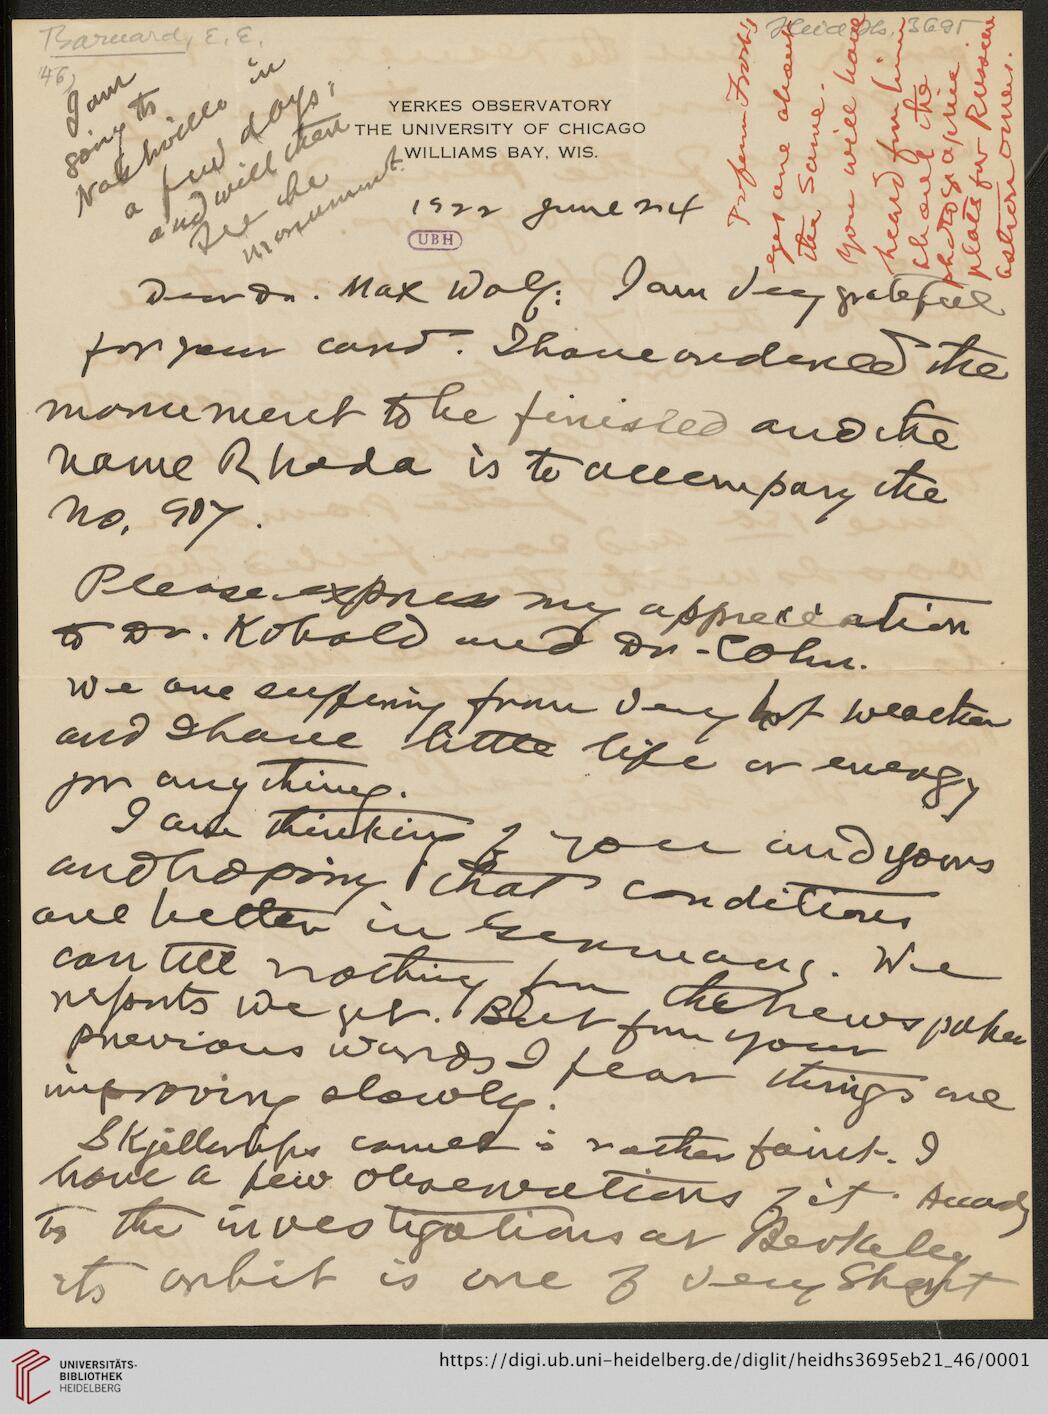 Barnard, E. E.
46)
Heid. Hs. 3695
I am
going to
Nashville in
a few days,
and will then
see the
monument.
Professor Frost's
eyes are about
the same.
You will have
heard from him
about the
photographic
plates for Russian
astronomers.
YERKES OBSERVATORY
THE UNIVERSITY OF CHICAGO
WILLIAMS BAY, WIS.
1922 June 24
UBH
Dear Dr. Max Wolf: I am very grateful
for your card. I have ordered the
monument to be finished and the
name Rhoda is to accompany the
No. 907.
Please express my appreciation
to Dr. Kobold and Dr. Cohn.
We are suffering from very hot weather
and I have little life or energy
for anything.
I am thinking of you and yours
and hoping that conditions
are better in Germany. We
can tell nothing from the newspaper
reports we get. But from your
previous words I fear things are
improving slowly.
Skjellerups comet is rather faint. I
have a few observations of it.
to the investigations at Berkeley
its orbit is one of very short
UNIVERSITÄTS-
BIBLIOTHEK
HEIDELBERG
https://digi.ub.uni-heidelberg.de/diglit/heidhs3695eb21_46/0001